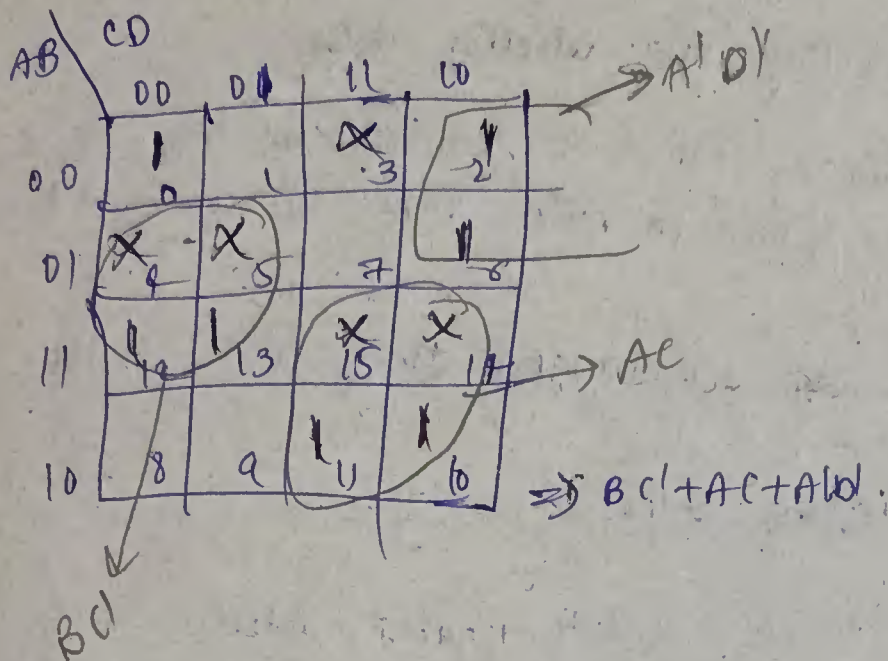 CD
AB
00 01 11 10
A'D'
00 1 0 1 X 3 1 2
01 X 4 X 5 7 1 6
11 1 12 1 13 X 15 X 14
AC
10 8 9 1 11 1 10
=> BC'+AC+A'D'
BC'